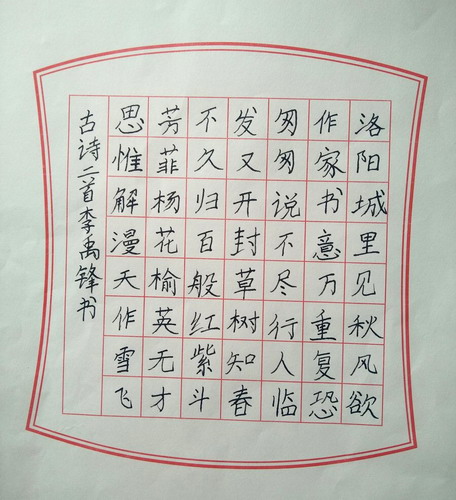 洛阳城里见秋风欲
作家书意万重复恐
匆匆说不尽行人临
发又开封草树知春
不久归百般红紫斗
芳菲杨花榆英无才
思惟解漫天作雪飞
古诗二首李禹锋书